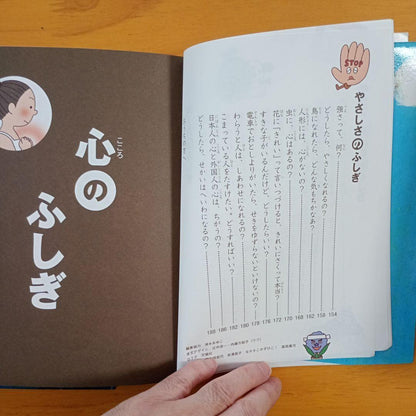 心のふしぎ
こころ
STOP
やさしさのふしぎ
強さって、何？ 154
どうしたら、やさしくなれるの？ 158
鳥になれたら、どんな気もちかなあ？ 162
人形には、心がないの？ 168
虫に、心はあるの？ 170
花に「きれい」って言いつづけると、きれいにさくって本当？ 172
すきな子がいるんだけど、どうしたらいい？ 176
電車でおとしよりがいたら、せきをゆずらないといけないの？ 178
わらうと人は、しあわせになれるの？ 180
こまっている人をたすけたい。どうすればいい？ 182
日本人の心と外国人の心は、ちがうの？ 186
どうしたら、せかいはへいわになるの？ 188